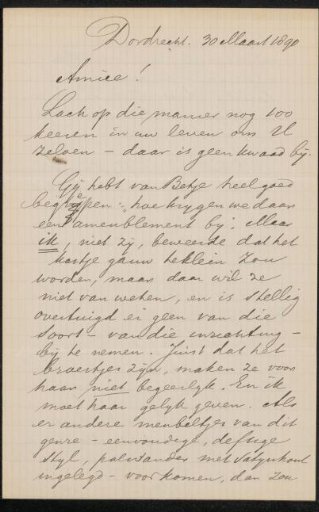 Dordrecht. 30 Maart 1890
Amice!
Lach op die manier nog 100
keeren in uw leven om U
zelven – daar is geen kwaad bij.
Gij hebt van Betje heel goed
begrepen: hoe krygen we daar
een ameublement bij. Maar
ik, niet zij, beweerde dat het
kastje gauw te klein zou
worden, maar daar wil ze
niet van weten, en is stellig
overtuigd er geen van die
soort – van die inrichting –
bij te nemen. Juist dat het
broertjes zijn, maken ze voor
haar niet begeerlyk. En ik
moet haar gelyk geven. Als
er andere meubeltjes van dit
genre – eenvoudige, deftige
styl, palissander met Satynhout
ingelegd – voorkomen, dan zou